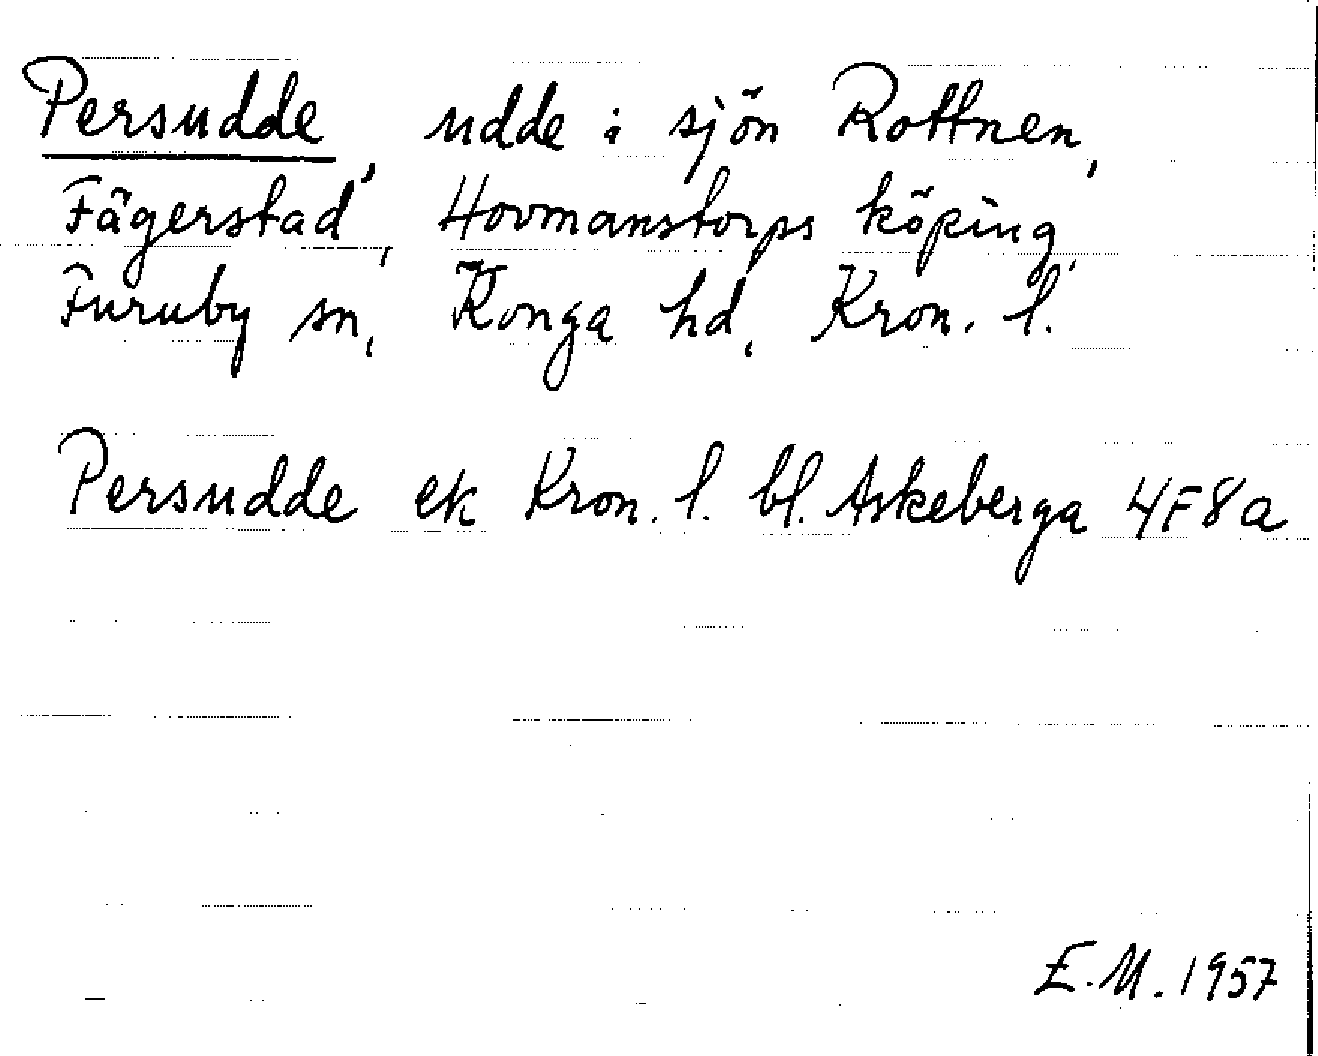 Persudde, udde i sjön Rottnen,
Fägerstad, Hovmanstorps köping,
Furuby sn, Konga hd, Kron. l.
Persudde ek Kron. l. bl. Askeberga 4F8a
E.M. 1957